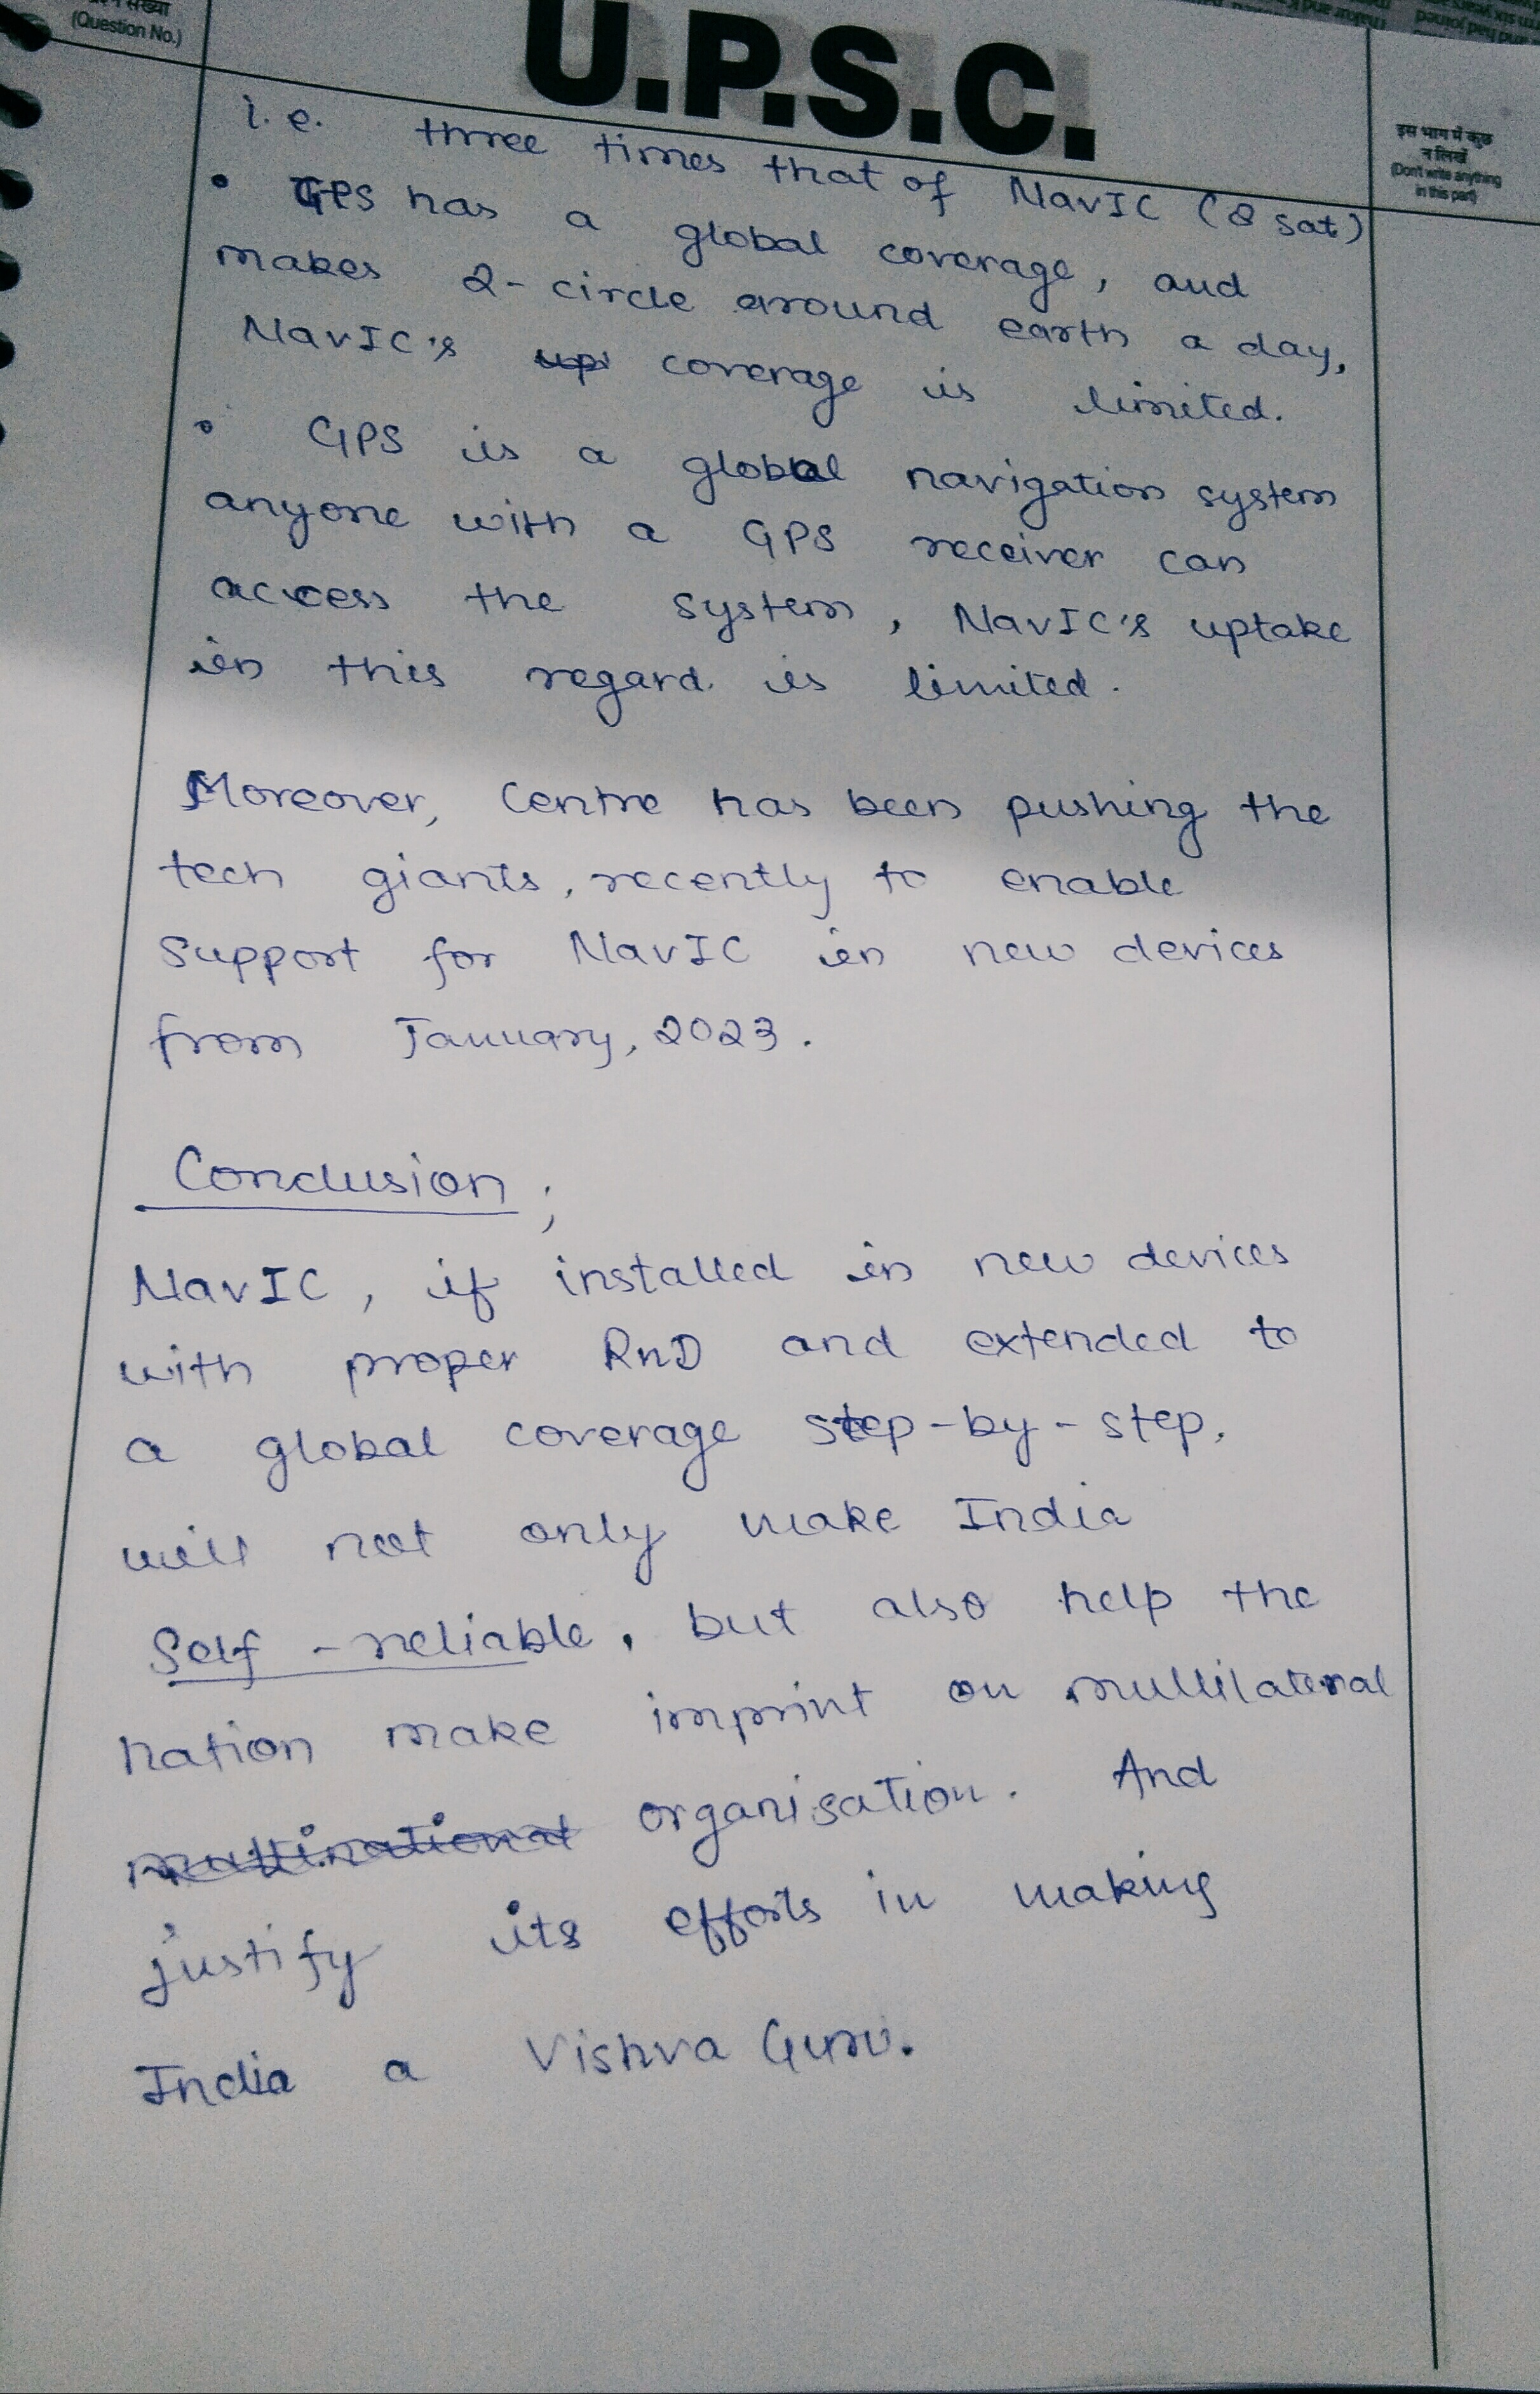 संख्या
(Question No.)
U.P.S.C.
इस भाग में कुछ
न लिखें
(Don't write anything
in this part)
i.e. three times that of NavIC (8 sat)
• GPS has a global coverage, and
makes 2-circle around earth a day,
NavIC's up coverage is limited.
• GPS is a global navigation system
anyone with a GPS receiver can
access the system, NavIC's uptake
in this regard is limited.
Moreover, Centre has been pushing the
tech giants, recently to enable
support for NavIC in new devices
from January, 2023.
Conclusion;
NavIC, if installed in new devices
with proper RnD and extended to
a global coverage step-by-step,
will not only make India
Self-reliable, but also help the
nation make imprint on multilateral
multinational organisation. And
justify its efforts in making
India a Vishva Guru.